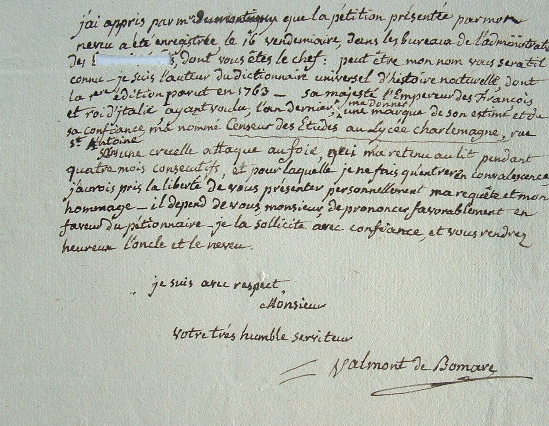 j'ai appris par mr Dumontier que la pétition présentée par mon
neveu a été enregistrée le 16 vendemiaire, dans les bureaux de l'administration
des s, dont vous êtes le chef : peut être mon nom vous serat il
connu — je suis l'auteur du dictionnaire universel d'histoire naturelle dont
la 1ere édition parut en 1763 — sa majesté l'Empereur des François
et roi d'italie ayant voulu, l'an dernier, me donner une marque de son estime et de
sa confiance m'a nommé Censeur des Etudes au Lycée Charlemagne, rue
St Antoine
sans une cruelle attaque au foie, qui m'a retenu au lit pendant
quatre mois consecutifs, et pour laquelle je ne fais qu'entrer en convalescence,
j'aurois pris la liberté de vous présenter personnellement ma requête et mon
hommage — il depend de vous, monsieur, de prononcer favorablement en
faveur du pétionnaire — je la sollicite avec confiance, et vous rendrez
heureux l'oncle et le neveu.
je suis avec respect,
Monsieur
votre très humble serviteur
Valmont de Bomare